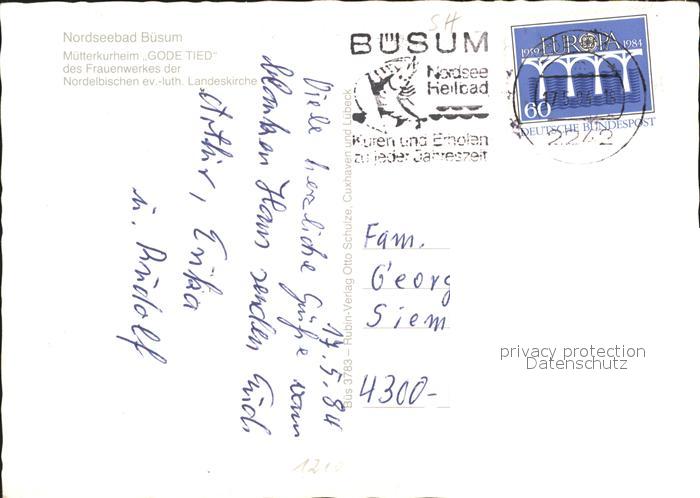 Nordseebad Büsum
Mütterkurheim „GODE TIED"
des Frauenwerkes der
Nordelbischen ev.-luth. Landeskirche
SH
BÜSUM
Nordsee
Heilbad
Kuren und Erholen
zu jeder Jahreszeit
1959 EUROPA 1984
60
DEUTSCHE BUNDESPOST
2242
Büs 3783 – Rubin-Verlag Otto Schulze, Cuxhaven und Lübeck
17.5.84
Viele herzliche Grüße vom
blanken Hans senden Euch
Arthur, Erika
u. Rudolf
Fam.
Georg
Siem
4300-
privacy protection
Datenschutz